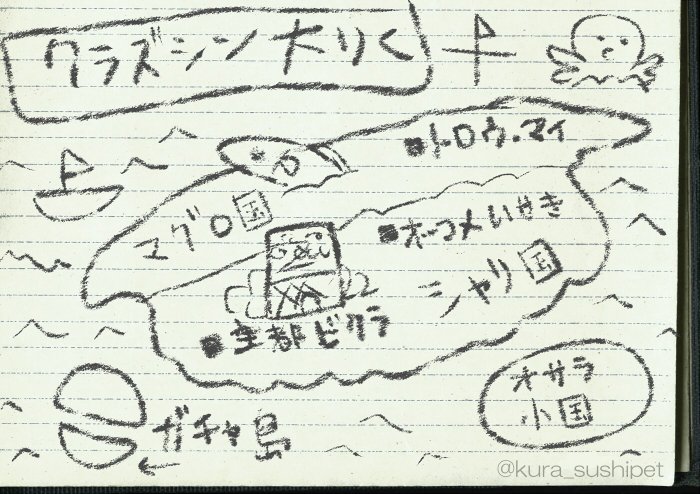 クラズシン大りく
■トロウ・マイ
マグロ国
■オコメいせき
シャリ国
■主都ビクラ
ガチャ島
オサラ
小国
@kura_sushipet